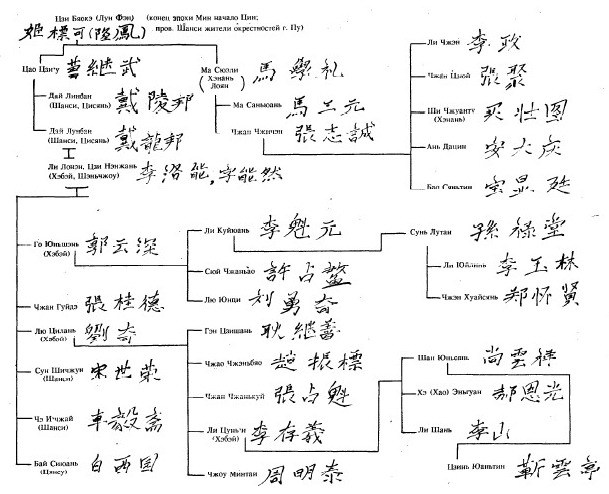 Цзи Бяокэ (Лун Фэн) (конец эпохи Мин начало Цин;
пров. Шанси жители окрестностей г. Пу)
姬標可(隆鳳)
Цао Цзиу 曹継武
Ма Сюэли 馬學礼
(Хэнань
Лоян)
Дай Линбан 戴陵邦
(Шанси, Цисянь)
Ма Саньюань 馬三元
Дай Лунбан 戴龍邦
(Шанси, Цисянь)
Чжан Чжичэн 張志誠
Ли Лонэн, Цзи Нэнжань 李洛能,字能然
(Хэбэй, Шэньчжоу)
Ли Чжэн 李政
Чжан Цзюй 張聚
Ши Чжуанту 买壮图
(Хэнань)
Ань Дацин 安大庆
Бао Сяньтин 宝显廷
Го Юньшэнь 郭云深
(Хэбэй)
Чжан Гуйдэ 張桂德
Лю Цилань 劉奇
(Хэбэй)
Сун Шичжун 宋世荣
(Шанси)
Чэ Ичжай 車毅斎
(Шанси)
Бай Сиюань 白西園
(Цзянсу)
Ли Куйюань 李魁元
Сюй Чжаньао 許占鳌
Лю Юнци 刘勇奇
Сунь Лутан 孫祿堂
Ли Юйлинь 李玉林
Чжэн Хуайсянь 郑怀賢
Гэн Цзишань 耿継善
Чжао Чжэньбяо 趙振標
Чжан Чжанькуй 張占魁
Ли Цуньи 李存義
(Хэбэй)
Чжоу Минтай 周明泰
Шан Юньсян 尚雲祥
Хэ (Хао) Эньгуан 郝恩光
Ли Шань 李山
Цзинь Юаньтин 靳雲亭